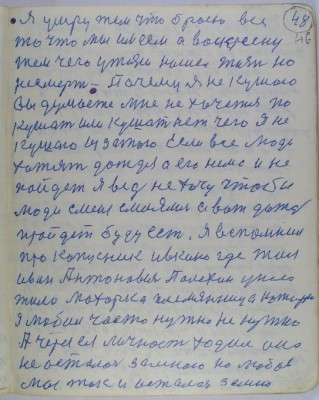 48
46
Я умру тем что брошу все
то что мы имеем а воскресну
тем чего у тела нашего
Почему я не кушаю
Вы думаете мне не хочется по
кушать или кушать нет чего Я не
кушаю из затого Если все люди
хотят дождя а его нема и не
пойдет Я ведь не хочу чтоби
люди смеялися а вот дождь
пройдет буду есть. Я вспомнил
про где жил
Иван Антонович у него
жила Моторка племянница которую
я любил часто нужно не нужно
А через ея личность ходил она
не осталась за мною но любовь
моя так и осталась за мно